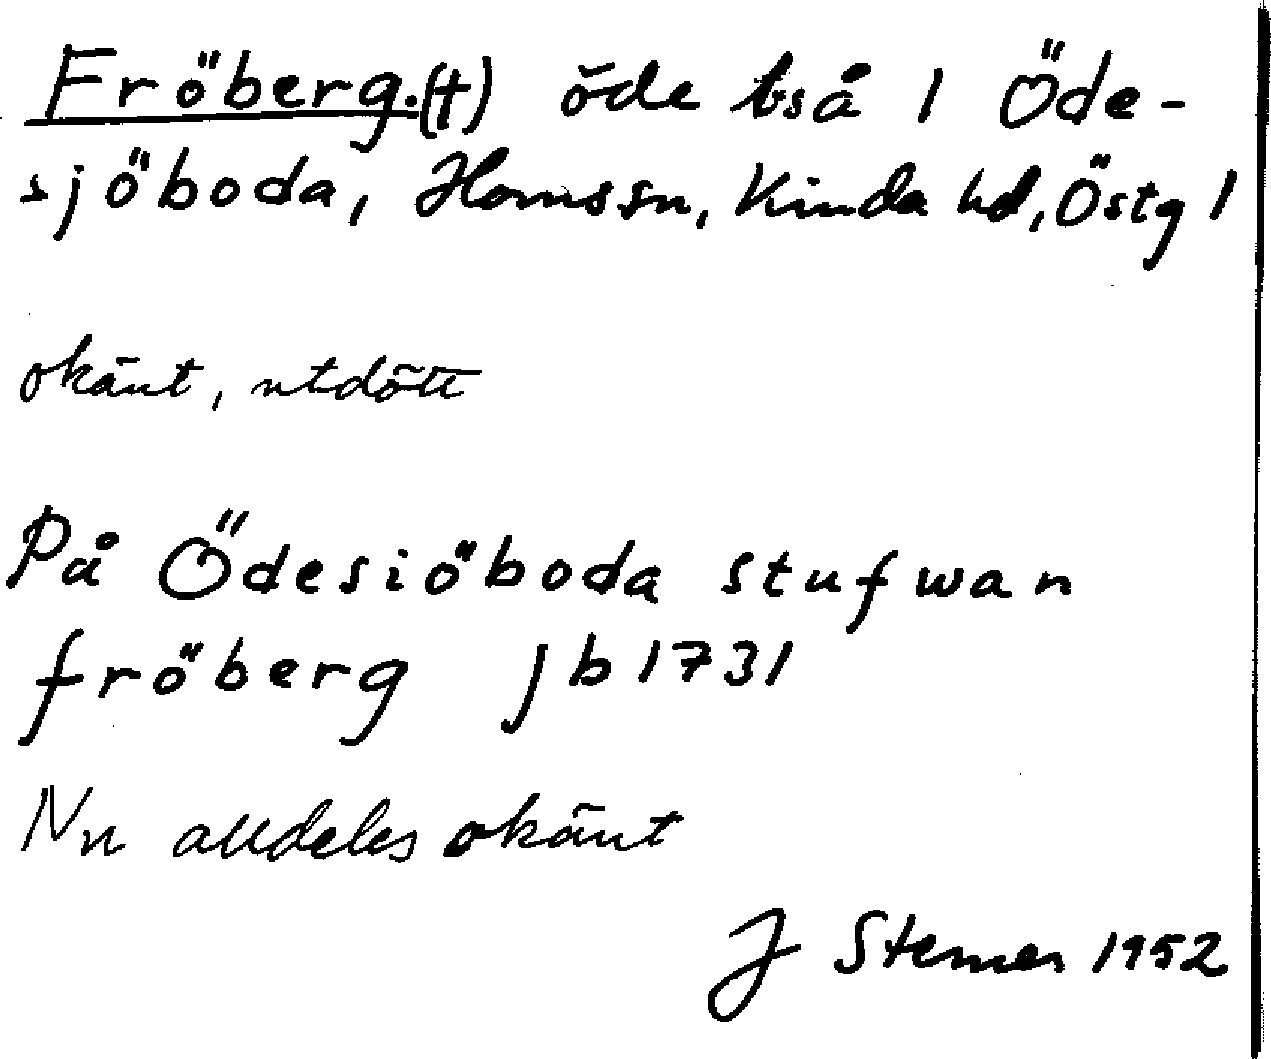 Fröberg. (†) öde bså / Öde-
sjöboda, Homssn, Kinda hd, Östg l
okänt, utdött
På Ödesiöboda stufwan
fröberg jb 1731
Nu alldeles okänt
J Sterner 1952